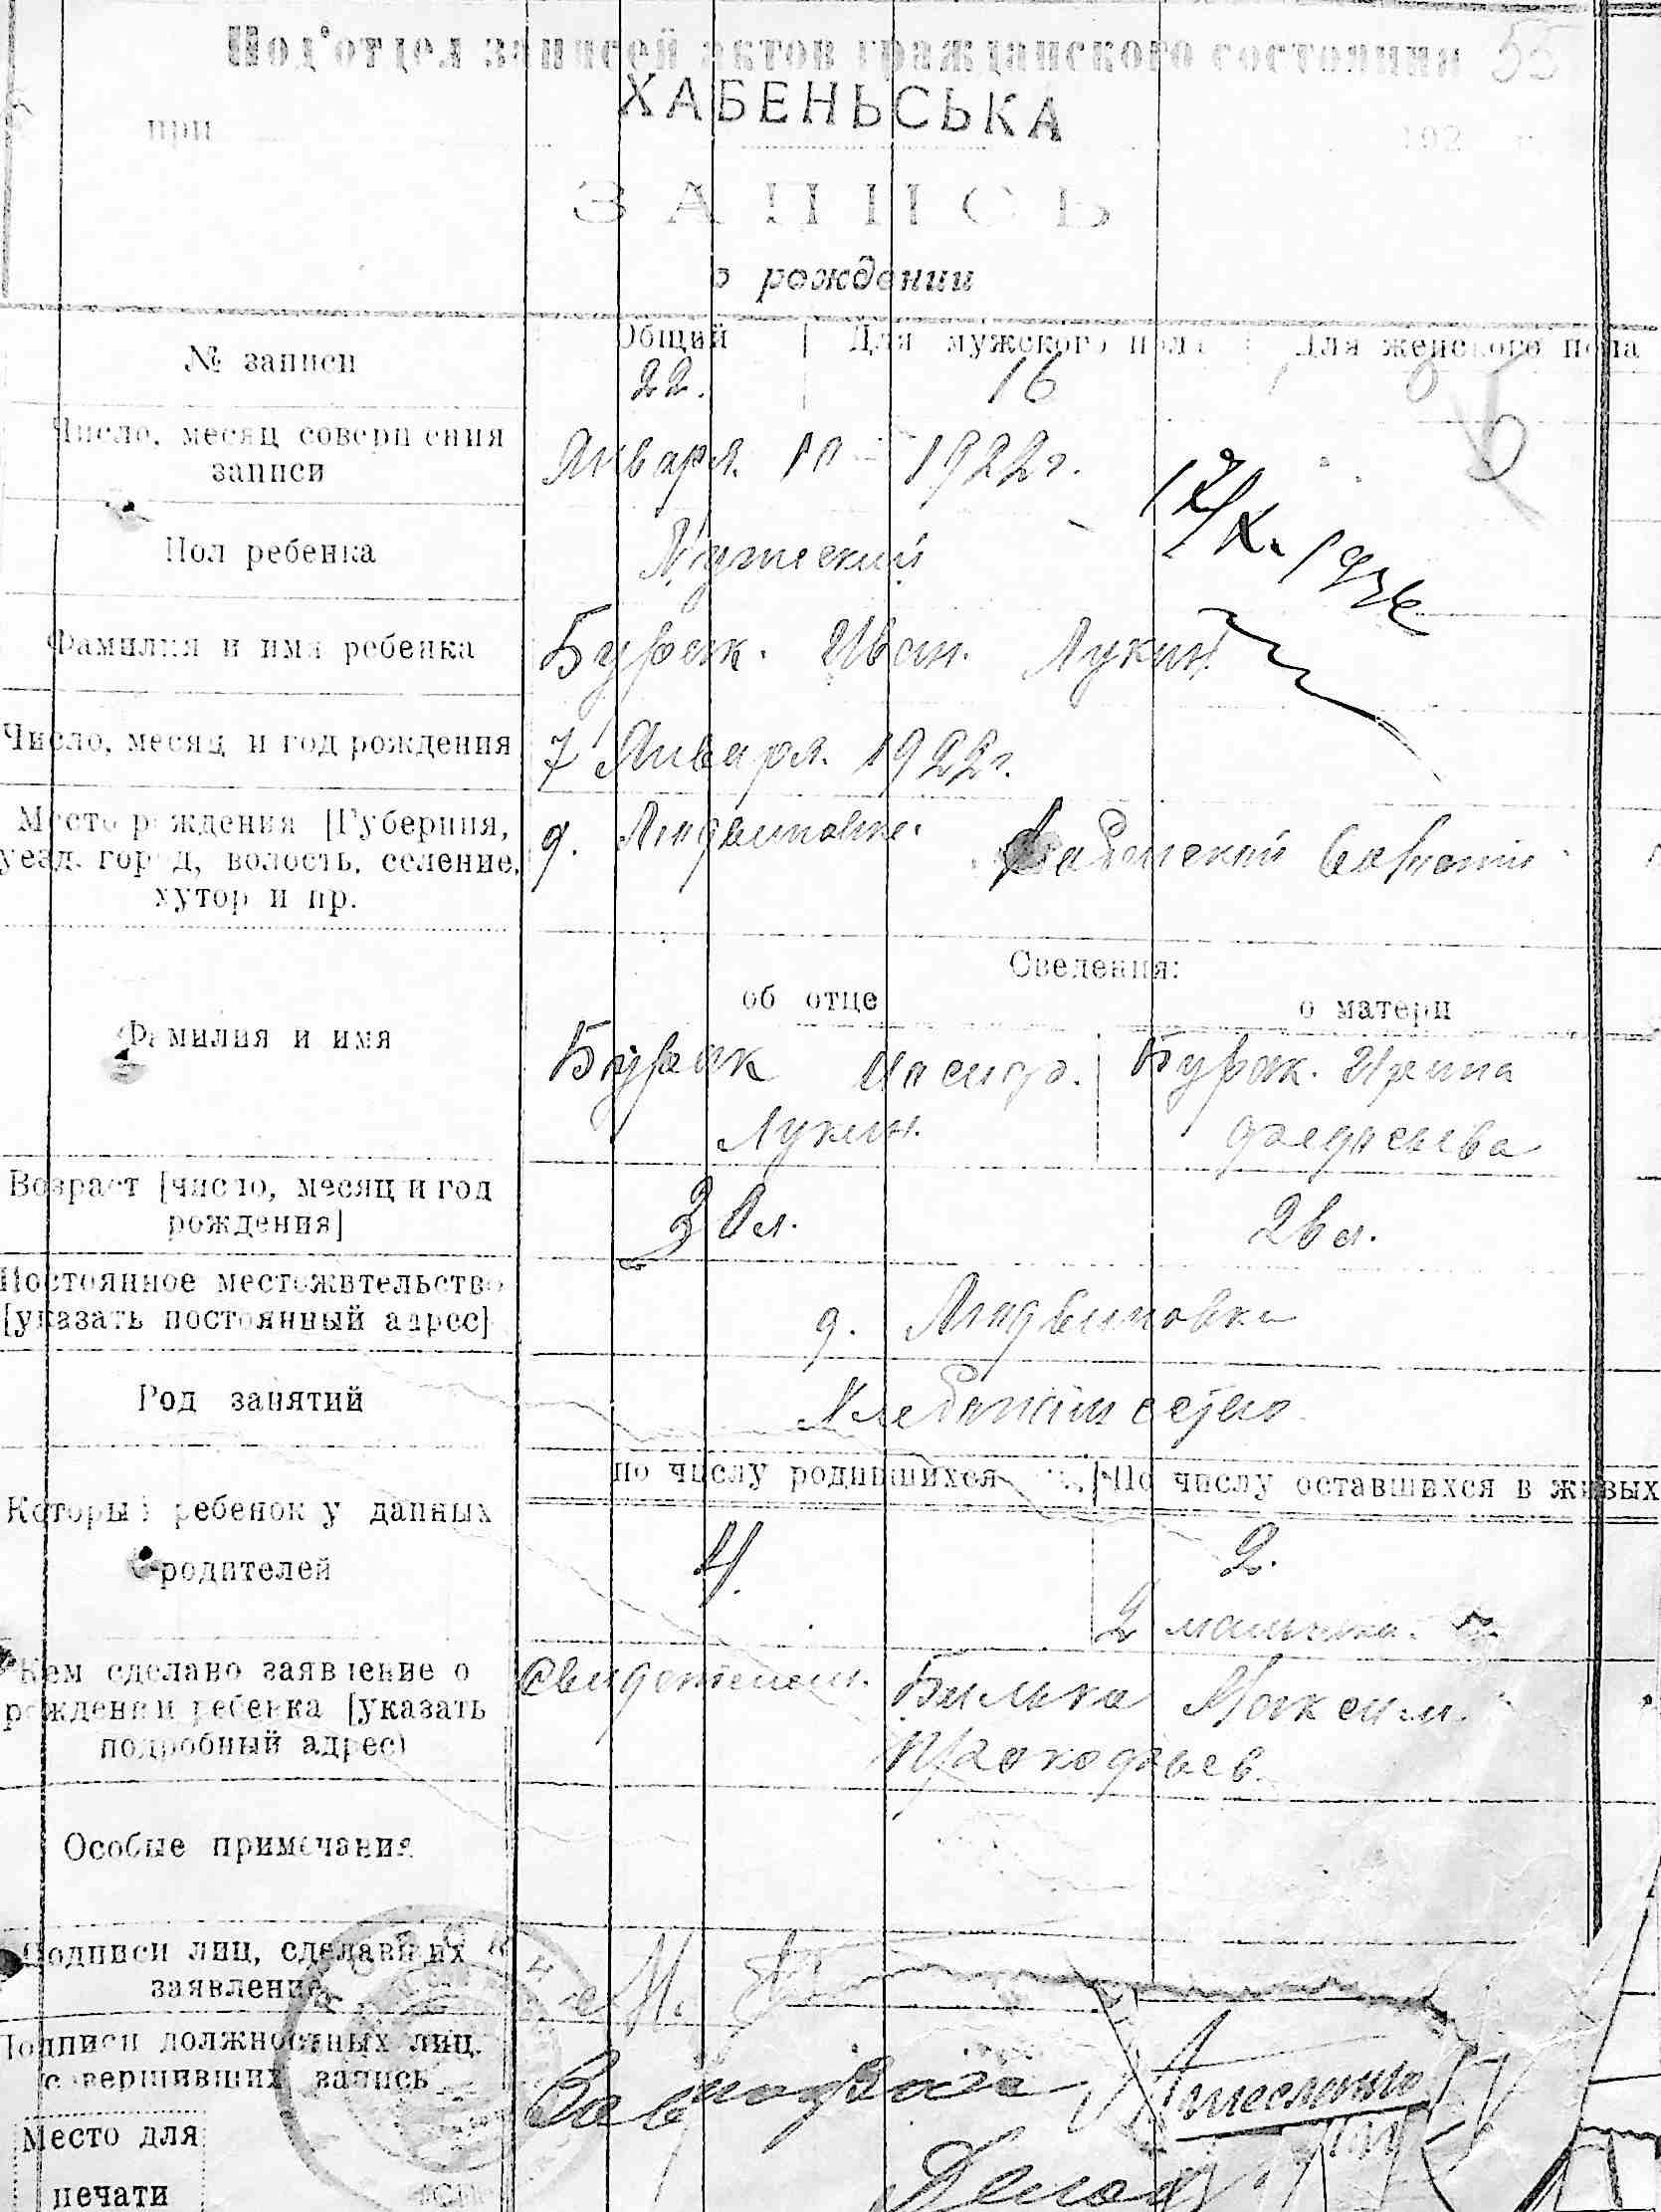 Под'отдел записей актов гражданского состояния 55
ХАБЕНЬСЬКА
при 192
ЗАПИСЬ
о рождении
№ записи
Общий Для мужского пола Для женского пола
22. 16
Число, месяц совершения
записи
Января 10 1922 г.
Пол ребенка
Мужеский
Фамилия и имя ребенка
Бурак. Иван. Лукин
Число, месяц и год рождения
7 Января 1922 г.
Место рождения [Губерния,
уезд. город, волость, селение,
хутор и пр.
д. волости
Сведения:
об отце о матери
Фамилия и имя
Бурак Бурак. Ирина
Лукин.
Возраст [число, месяц и год
рождения]
30 л. 26 л.
Постоянное местожительство
[указать постоянный адрес]
д.
Род занятий
Хлебопашество
по числу родившихся По числу оставшихся в живых
Который ребенок у данных
родителей
4. 2.
2 мальчика.
Кем сделано заявление о
рождении ребенка [указать
подробный адрес)
Свидетелем. Максим
Прокофьев.
Особые примечания
Подписи лиц, сделавших
заявление
М.
Подписи должностных лиц,
совершивших запись
Место для
печати